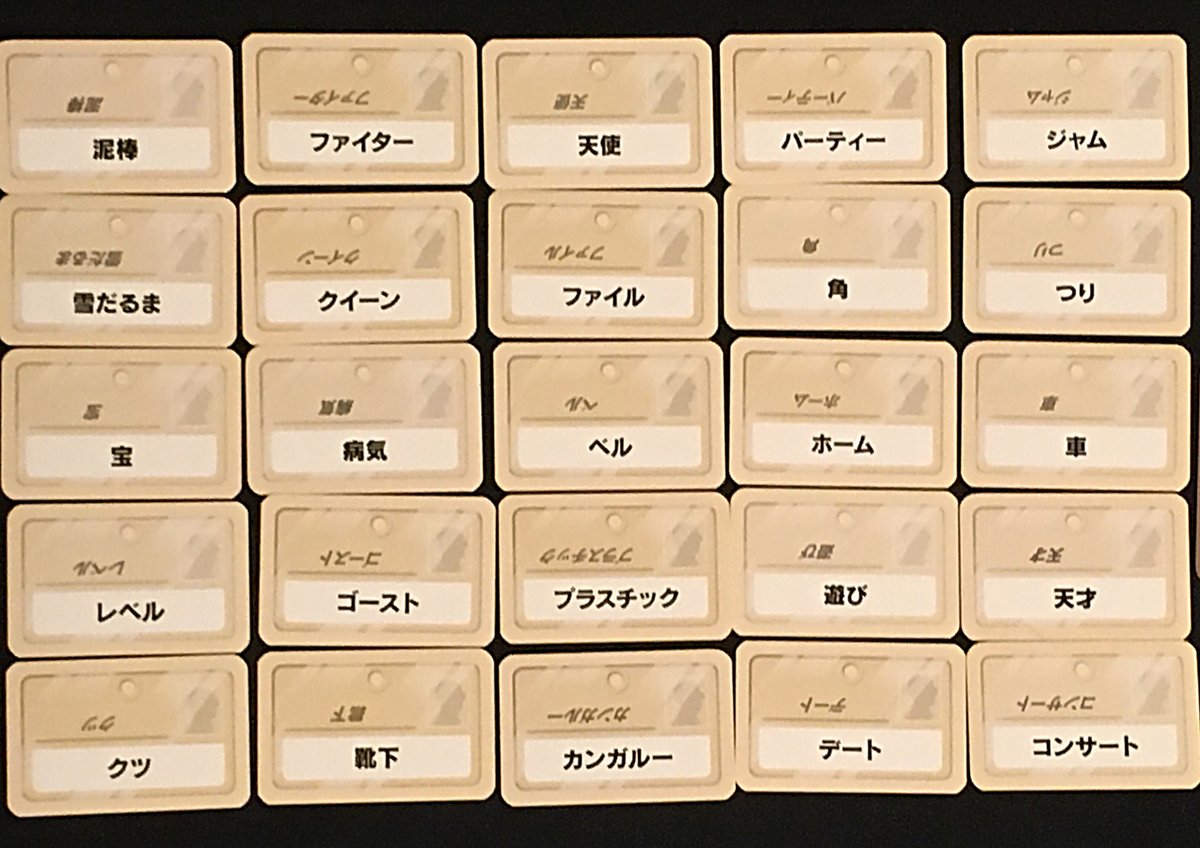 泥棒
泥棒
ファイター
ファイター
天使
天使
パーティー
パーティー
ジャム
ジャム
雪だるま
雪だるま
クイーン
クイーン
ファイル
ファイル
角
角
つり
つり
宝
宝
病気
病気
ベル
ベル
ホーム
ホーム
車
車
レベル
レベル
ゴースト
ゴースト
プラスチック
プラスチック
遊び
遊び
天才
天才
クツ
クツ
靴下
靴下
カンガルー
カンガルー
デート
デート
コンサート
コンサート